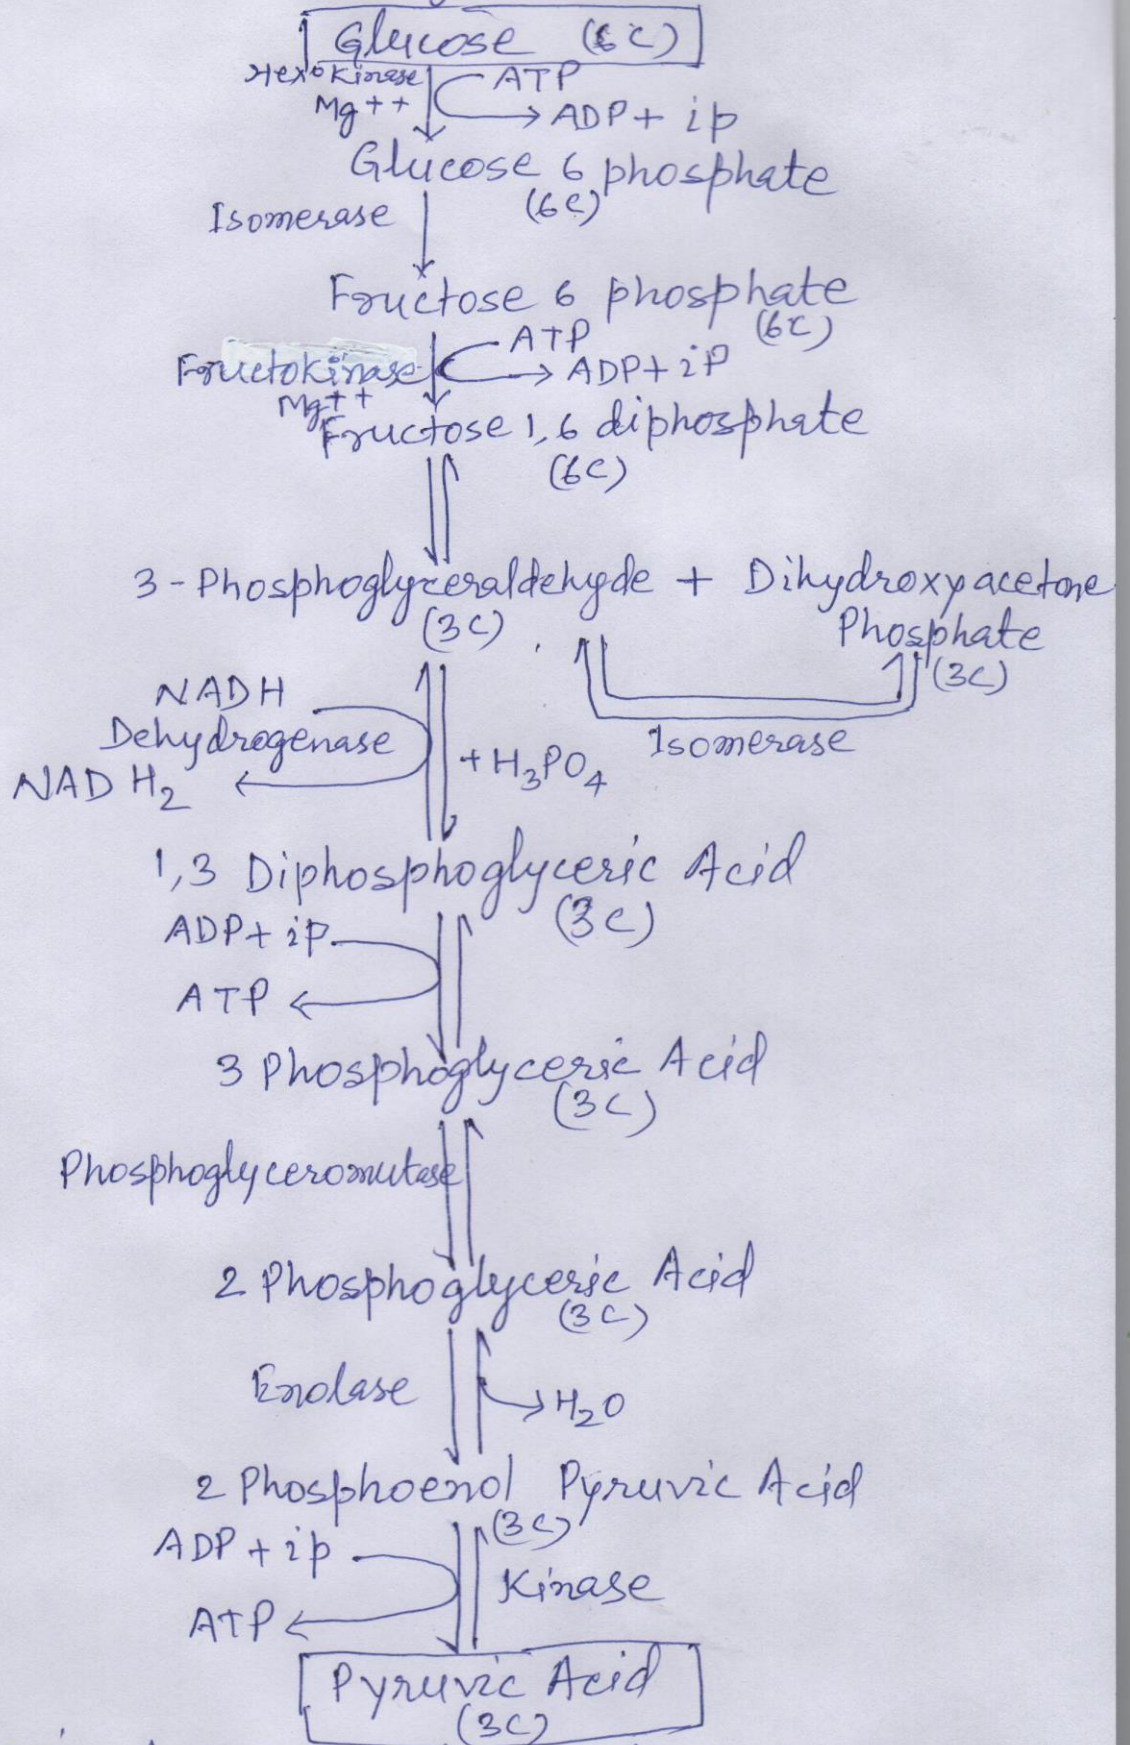 Glucose (6C)
Hexokinase ATP
Mg++ ADP + ip
Glucose 6 phosphate
Isomerase (6C)
Fructose 6 phosphate
(6C)
ATP
Fructokinase ADP + ip
Mg++
Fructose 1,6 diphosphate
(6C)
3-Phosphoglyceraldehyde + Dihydroxyacetone
(3C) Phosphate
(3C)
NADH
Dehydrogenase Isomerase
NAD H2 + H3PO4
1,3 Diphosphoglyceric Acid
(3C)
ADP + ip
ATP
3 Phosphoglyceric Acid
(3C)
Phosphoglyceromutase
2 Phosphoglyceric Acid
(3C)
Enolase H2O
2 Phosphoenol Pyruvic Acid
(3C)
ADP + ip
Kinase
ATP
Pyruvic Acid
(3C)